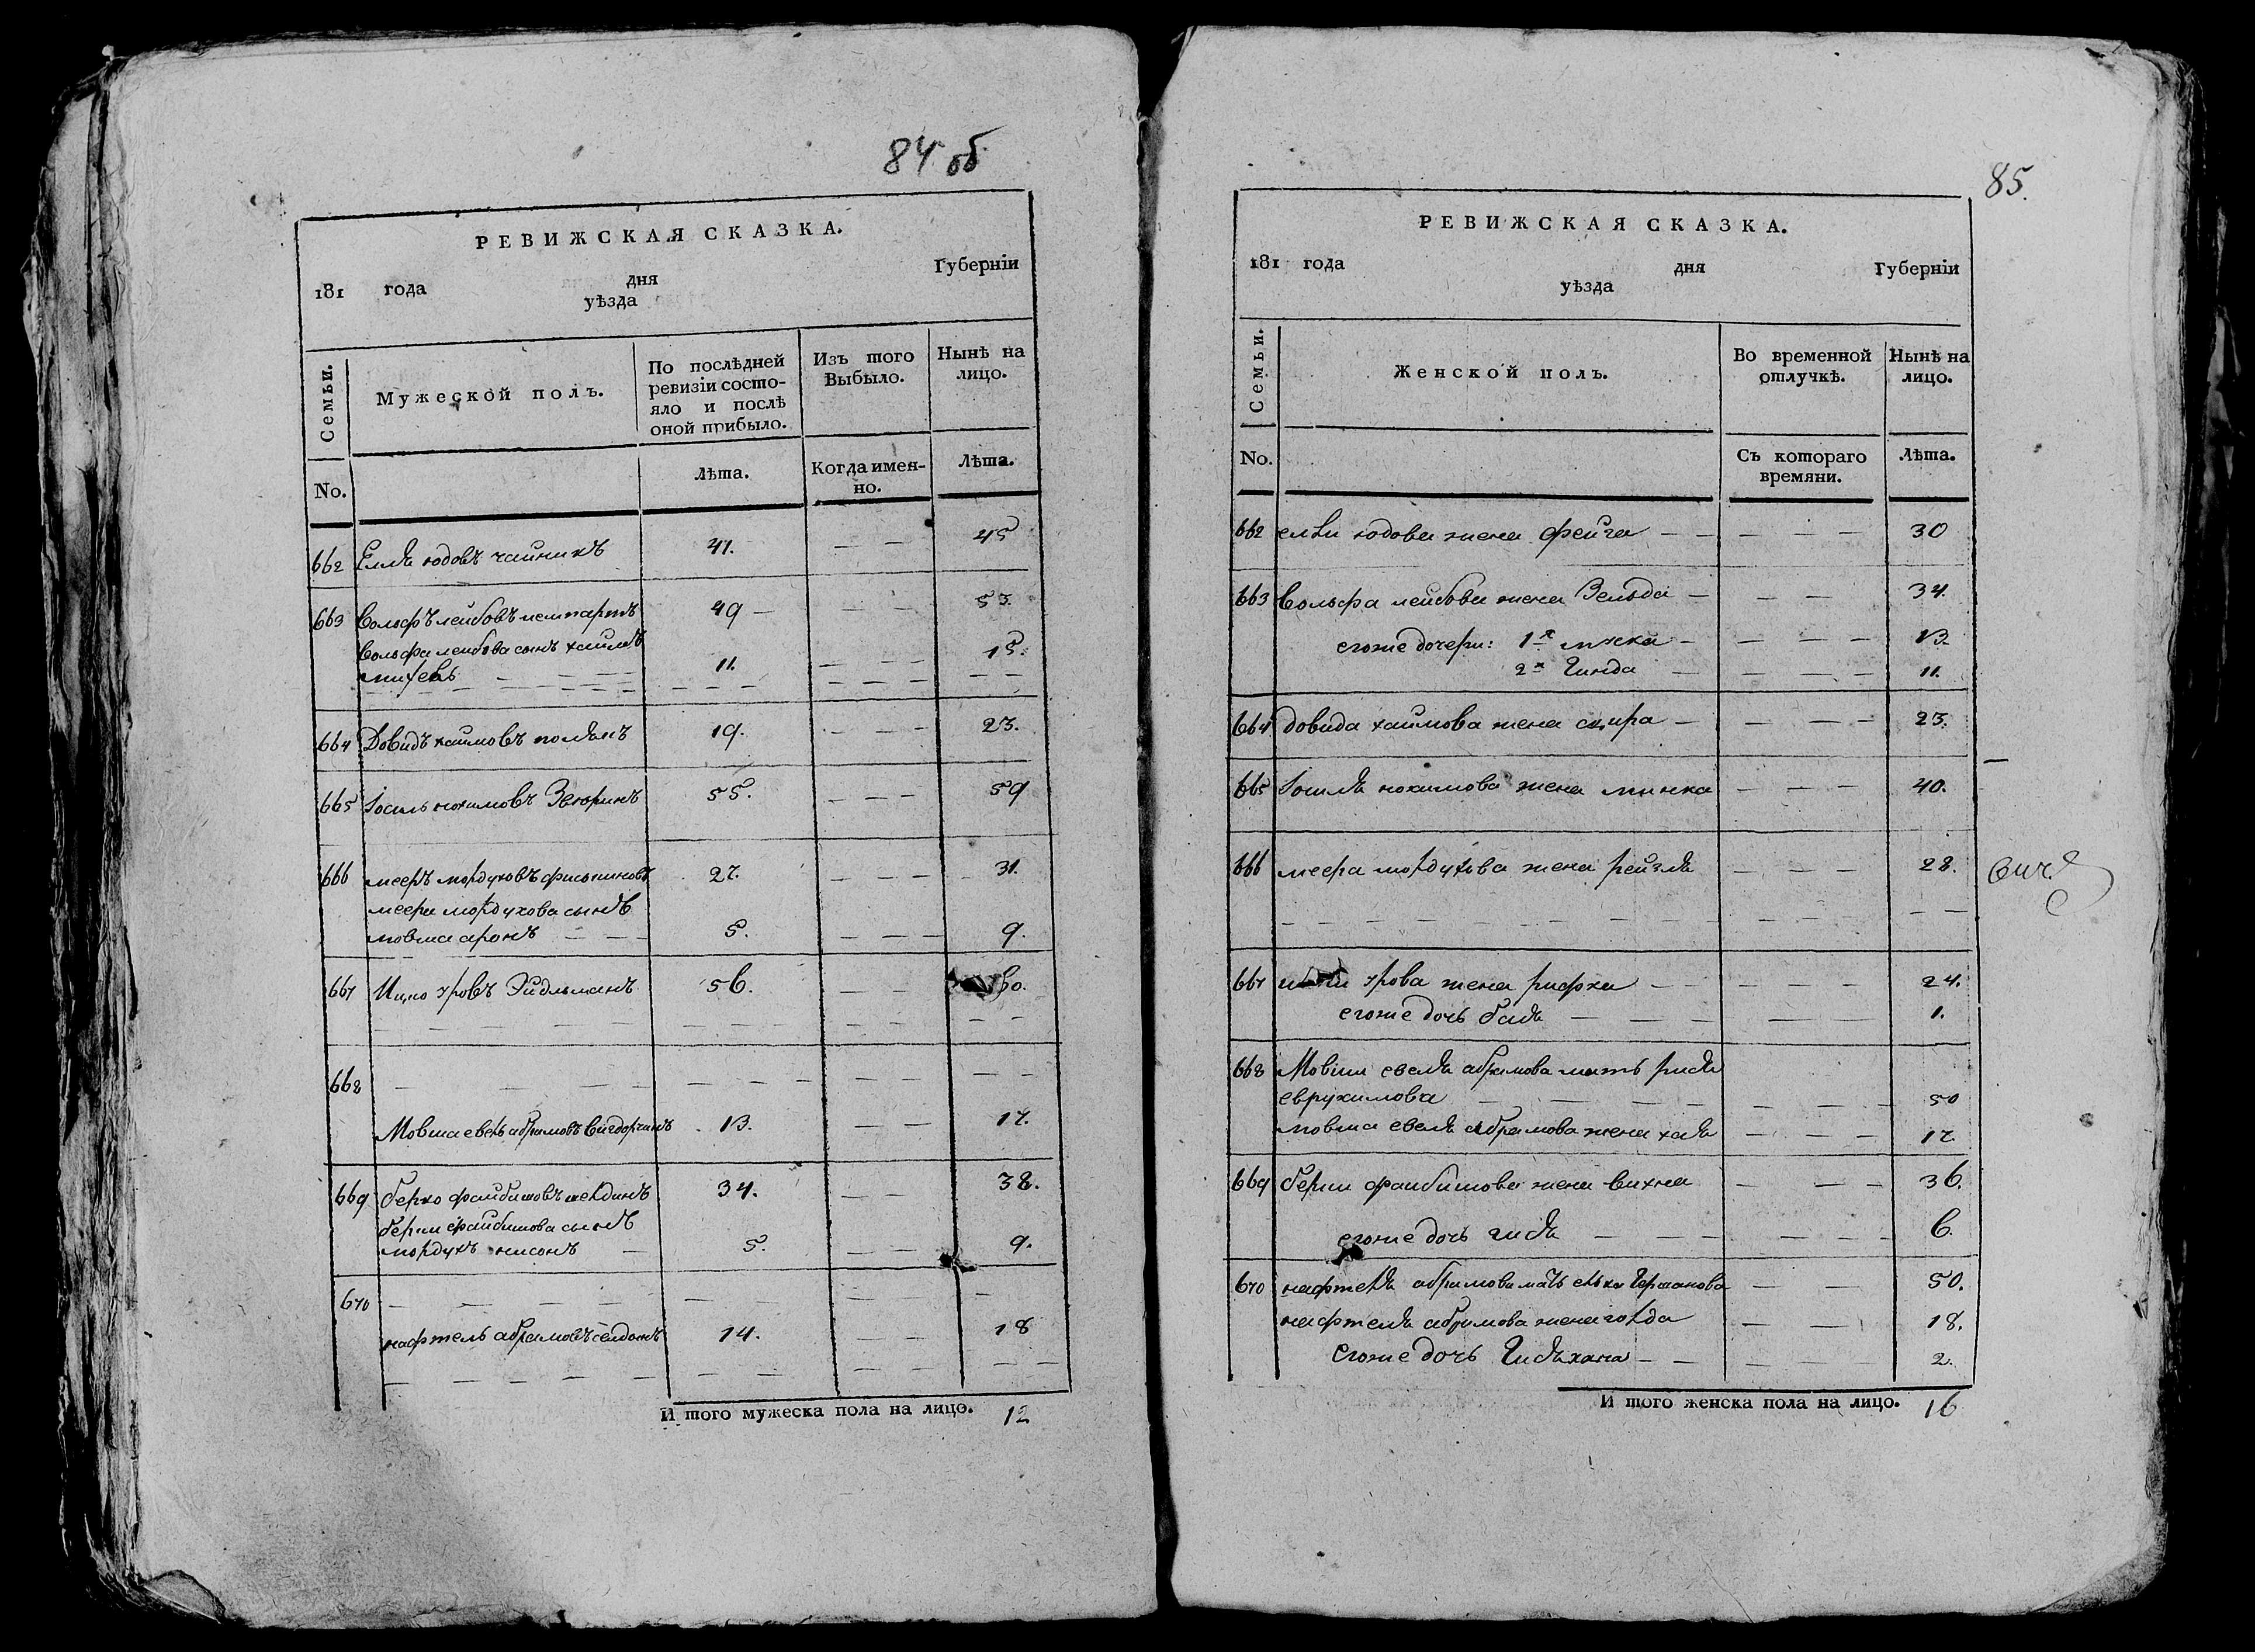 84 об
РЕВИЖСКАЯ СКАЗКА.
181 года дня Губерніи
уѣзда
Семьи.
Мужеской полъ.
По послѣдней ревизіи состояло и послѣ оной прибыло.
Изъ того Выбыло.
Нынѣ на лицо.
No.
Лѣта.
Когда именно.
Лѣта.
662 Елля юдовъ чайникъ 41. — — 45
663 Вольфъ лейбовъ 49 — — — 53.
Вольфа лейбова сынъ хаимъ
11. — — — 15.
664 Довидъ хаимовъ 19. — — — 23.
665 Іосиль нохимовъ 55. — — — 59
666 мееръ мордуховъ 27. — — — 31.
меера мордухова сынъ
мовша аронъ — — — 5. — — — 9.
667 Ицко уровъ Эйдльманъ 56. — — 60.
668 — — — — — — — — — —
Мовша евель абрамовъ 13. — — 17.
669 берко файбишовъ 34. — — 38.
берки файбишова сынъ
мордухъ нисонъ — 5. — — 9.
670 — — — — — — — — —
нафтель абрамовъ 14. — — 18
И того мужеска пола на лицо. 12
85.
РЕВИЖСКАЯ СКАЗКА.
181 года дня Губерніи
уѣзда
Семьи.
Женской полъ.
Во временной отлучкѣ.
Нынѣ на лицо.
No.
Съ котораго времяни.
Лѣта.
662 елли юдова жена фейга — — — — — 30
663 Вольфа лейбова жена Зельда — — — — 34.
егоже дочери: 1я — — — — 13.
2я Гинда — — — — 11.
664 довида хаимова жена — — — — 23.
665 Іошля нохимова жена минка — — — 40.
666 меера мордухова жена рейзля — — — 28.
667 урова жена рифка — — — — — 24.
егоже дочь бася — — — — — 1.
668 Мовши евеля абрамова мать
еврухимова — — — — — — — 50
мовша евеля абрамова жена хая — — — 17.
669 берки файбишова жена вихна — — — 36.
егоже дочь — — — — — — 6.
670 нафтеля абрамова мать — — 50.
нафтеля абрамова жена голда — — 18.
Егоже дочь — — — — — 2.
И того женска пола на лицо. 16